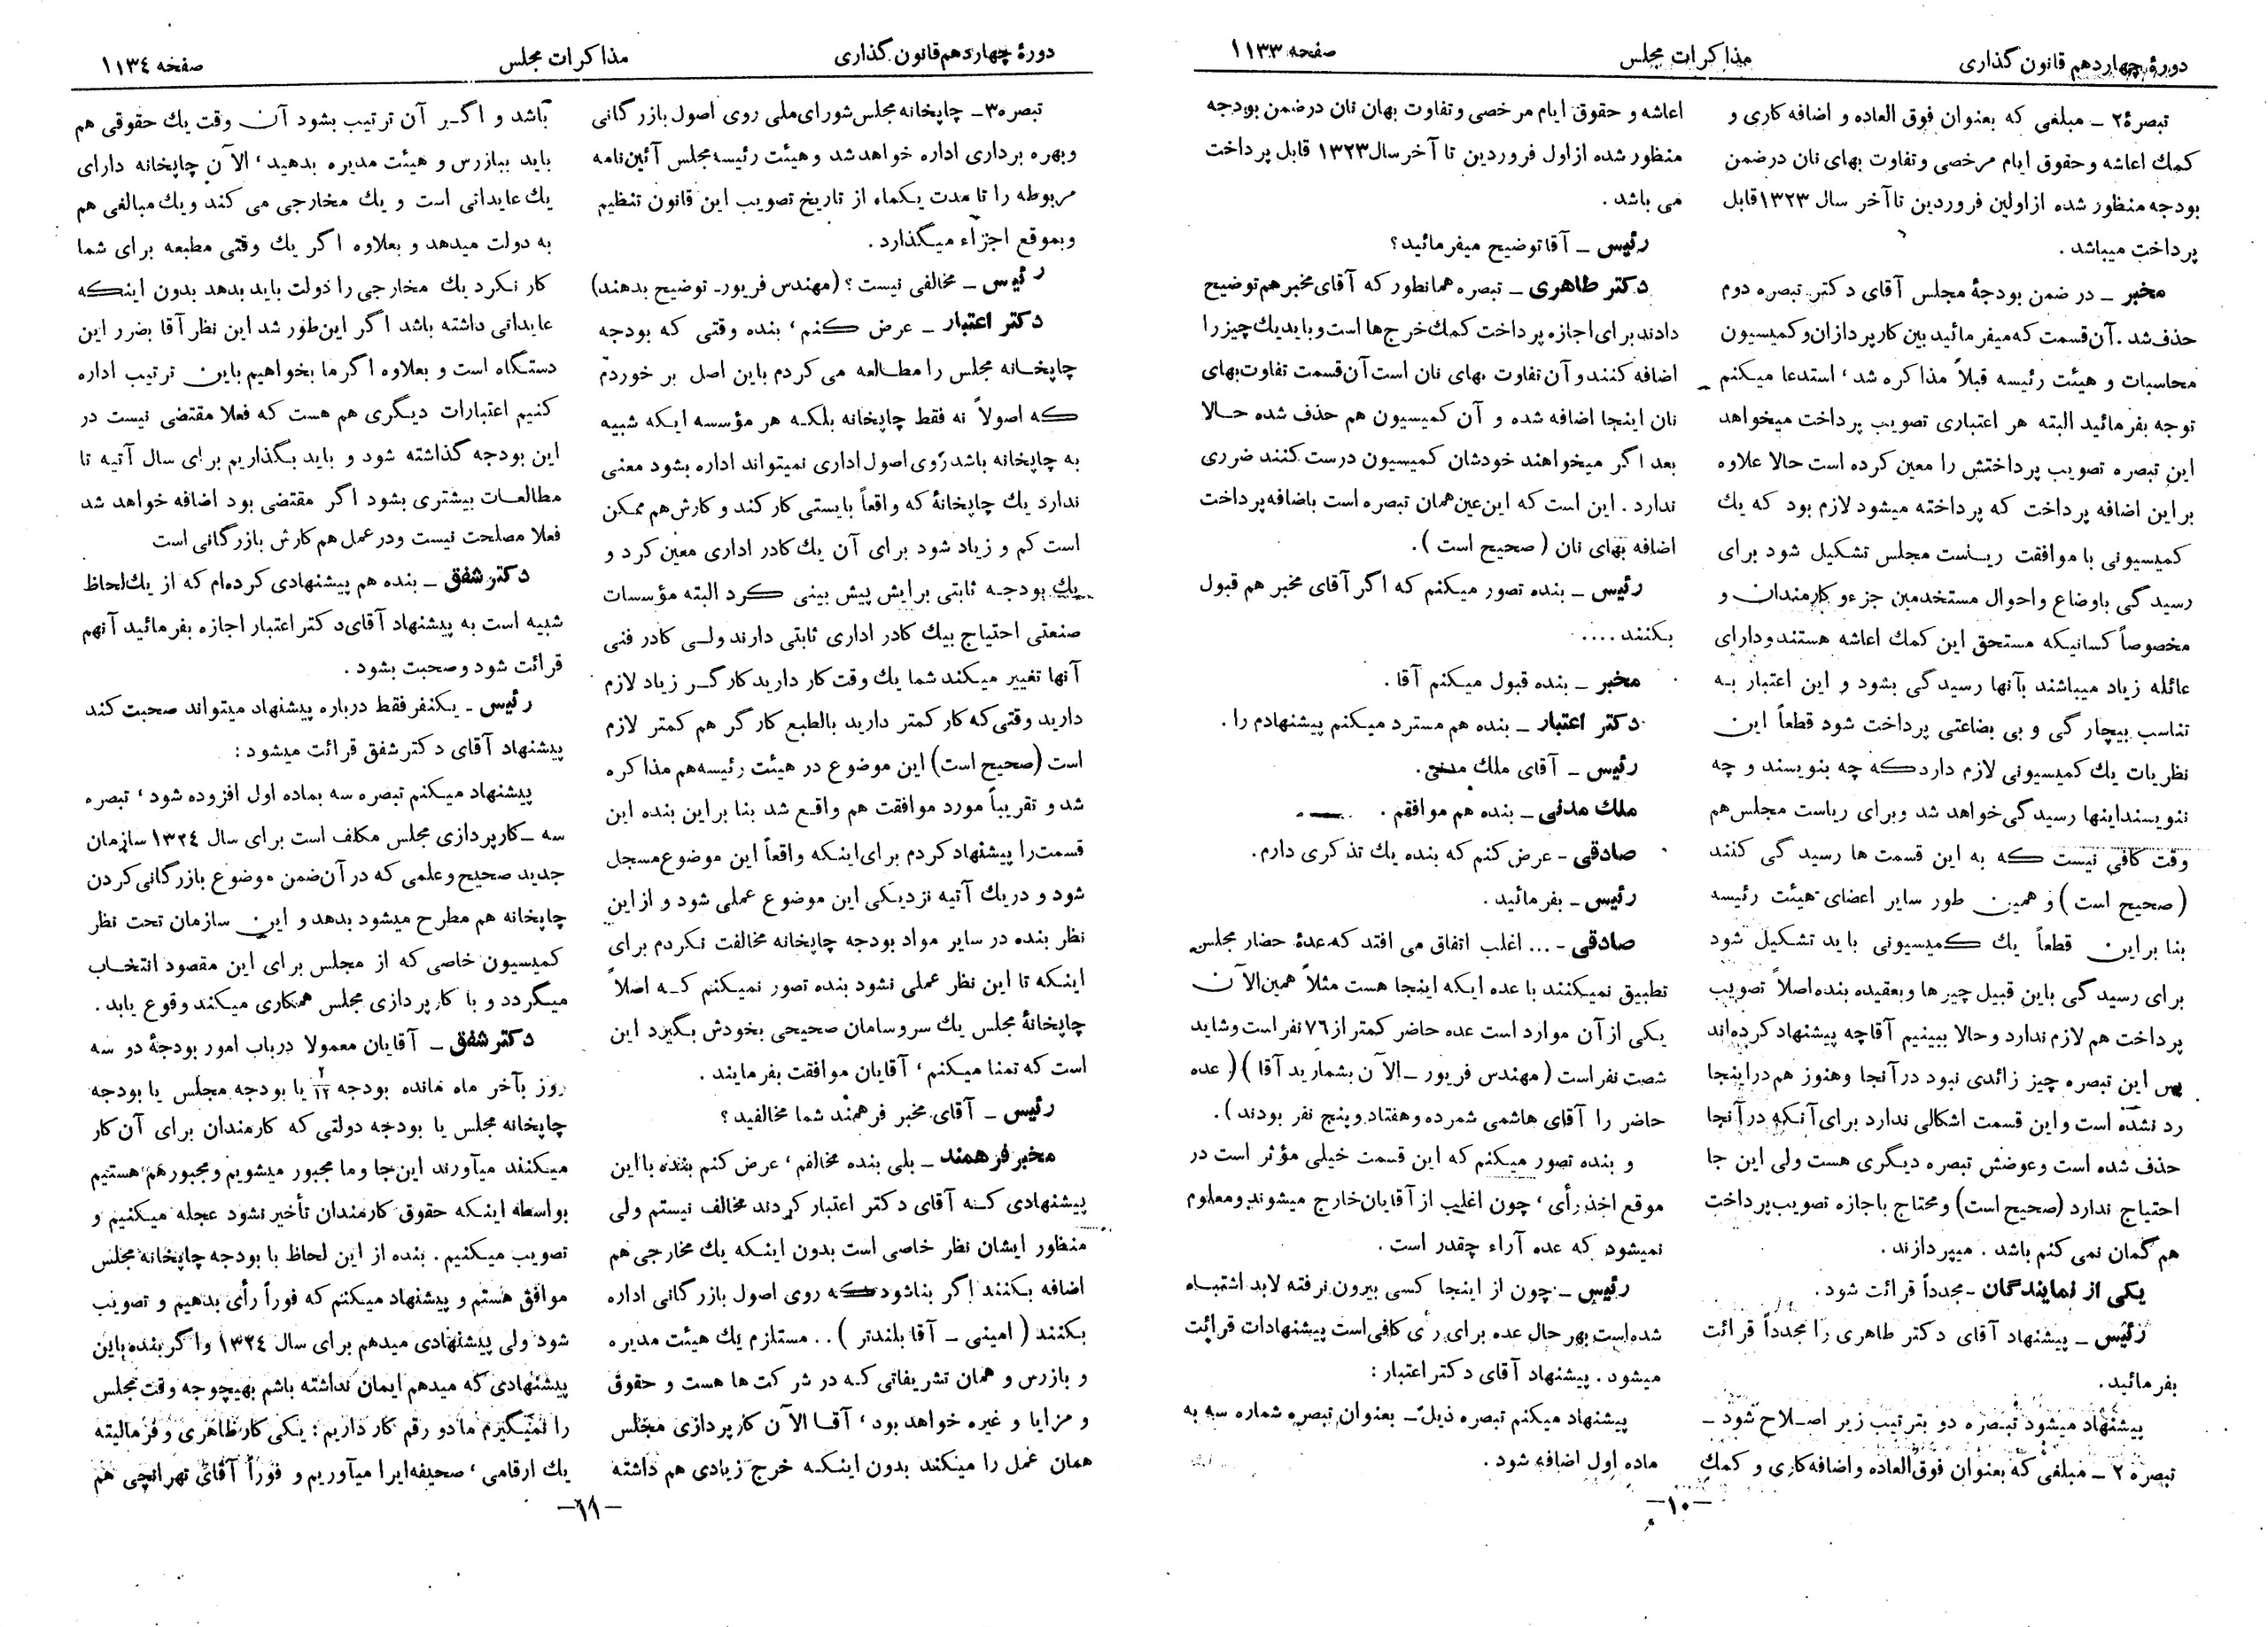 دورهٔ چهاردهم قانون گذاری
مذاکرات مجلس
صفحه ۱۱۳۳
تبصرهٔ ۲ ـ مبلغی که بعنوان فوق العاده و اضافه کاری و
کمك اعاشه و حقوق ایام مرخصی و تفاوت بهای نان در ضمن
بودجه منظور شده از اولین فروردین تا آخر سال ۱۳۲۳ قابل
پرداخت میباشد .
مخبر ـ در ضمن بودجهٔ مجلس آقای دکتر تبصره دوم
حذف شد . آن قسمت که میفرمائید بین کارپردازان و کمیسیون
محاسبات و هیئت رئیسه قبلاً مذاکره شد ، استدعا میکنم
توجه بفرمائید البته هر اعتباری تصویب پرداخت میخواهد
این تبصره تصویب پرداختش را معین کرده است حالا علاوه
بر این اضافه پرداخت که پرداخته میشود لازم بود که یك
کمیسیونی با موافقت ریاست مجلس تشکیل شود برای
رسیدگی باوضاع و احوال مستخدمین جزء و کارمندان و
مخصوصاً کسانیکه مستحق این کمك اعاشه هستند و دارای
عائله زیاد میباشند بآنها رسیدگی بشود و این اعتبار به
تناسب بیچارگی و بی بضاعتی پرداخت شود قطعاً این
نظریات یك کمیسیونی لازم دارد که چه بنویسند و چه
ننویسند اینها رسیدگی خواهد شد و برای ریاست مجلس هم
وقت کافی نیست که به این قسمت ها رسیدگی کنند
(صحیح است) و همین طور سایر اعضای هیئت رئیسه
بنا بر این قطعاً یك کمیسیونی باید تشکیل شود
برای رسیدگی باین قبیل چیزها و بعقیده بنده اصلاً تصویب
پرداخت هم لازم ندارد و حالا ببینیم آقا چه پیشنهاد کرده‌اند
پس این تبصره چیز زائدی نبود در آنجا و هنوز هم در اینجا
رد نشده است و این قسمت اشکالی ندارد برای آنکه در آنجا
حذف شده است و عوضش تبصره دیگری هست ولی این جا
احتیاج ندارد (صحیح است) و محتاج باجازه تصویب پرداخت
هم گمان نمی کنم باشد . میپردازند .
یکی از نمایندگان ـ مجدداً قرائت شود .
رئیس ـ پیشنهاد آقای دکتر طاهری را مجدداً قرائت
بفرمائید .
پیشنهاد میشود تبصره دو بترتیب زیر اصلاح شود ـ
تبصره ۲ ـ مبلغی که بعنوان فوق العاده و اضافه کاری و کمك
اعاشه و حقوق ایام مرخصی و تفاوت بهان نان در ضمن بودجه
منظور شده از اول فروردین تا آخر سال ۱۳۲۳ قابل پرداخت
می باشد .
رئیس ـ آقا توضیح میفرمائید؟
دکتر طاهری ـ تبصره همانطور که آقای مخبر هم توضیح
دادند برای اجازه پرداخت کمك خرج ها است و باید یك چیز را
اضافه کنند و آن تفاوت بهای نان است آن قسمت تفاوت بهای
نان اینجا اضافه شده و آن کمیسیون هم حذف شده حالا
بعد اگر میخواهند خودشان کمیسیون درست کنند ضرری
ندارد . این است که این عین همان تبصره است باضافه پرداخت
اضافه بهای نان (صحیح است) .
رئیس ـ بنده تصور میکنم که اگر آقای مخبر هم قبول
بکنند ....
مخبر ـ بنده قبول میکنم آقا .
دکتر اعتبار ـ بنده هم مسترد میکنم پیشنهادم را .
رئیس ـ آقای ملك مدنی .
ملك مدنی ـ بنده هم موافقم .
صادقی ـ عرض کنم که بنده یك تذکری دارم .
رئیس ـ بفرمائید .
صادقی ـ ... اغلب اتفاق می افتد که عدهٔ حضار مجلس
تطبیق نمیکنند با عده ایکه اینجا هست مثلاً همین الآن
یکی از آن موارد است عده حاضر کمتر از ۷۶ نفر است و شاید
شصت نفر است (مهندس فریور ـ الآن بشمارید آقا) (عده
حاضر را آقای هاشمی شمرده و هفتاد و پنج نفر بودند) .
و بنده تصور میکنم که این قسمت خیلی مؤثر است در
موقع اخذ رأی ، چون اغلب از آقایان خارج میشوند و معلوم
نمیشود که عده آراء چقدر است .
رئیس ـ چون از اینجا کسی بیرون نرفته لابد اشتباه
شده است بهر حال عده برای رأی کافی است پیشنهادات قرائت
میشود . پیشنهاد آقای دکتر اعتبار :
پیشنهاد میکنم تبصره ذیل ـ بعنوان تبصره شماره سه به
ماده اول اضافه شود .
ـ۱۰ـ
دورهٔ چهاردهم قانون گذاری
مذاکرات مجلس
صفحه ۱۱۳۴
تبصره ۳ـ چاپخانه مجلس شورای ملی روی اصول بازرگانی
و بهره برداری اداره خواهد شد و هیئت رئیسه مجلس آئین نامه
مربوطه را تا مدت یکماه از تاریخ تصویب این قانون تنظیم
و بموقع اجراء میگذارد .
رئیس ـ مخالفی نیست ؟ (مهندس فریور ـ توضیح بدهند)
دکتر اعتبار ـ عرض کنم ، بنده وقتی که بودجه
چاپخانه مجلس را مطالعه می کردم باین اصل بر خوردم
که اصولاً نه فقط چاپخانه بلکه هر مؤسسه ایکه شبیه
به چاپخانه باشد روی اصول اداری نمیتواند اداره بشود معنی
ندارد یك چاپخانهٔ که واقعاً بایستی کار کند و کارش هم ممکن
است کم و زیاد شود برای آن یك کادر اداری معین کرد و
یك بودجه ثابتی برایش پیش بینی کرد البته مؤسسات
صنعتی احتیاج بیك کادر اداری ثابتی دارند ولی کادر فنی
آنها تغییر میکند شما یك وقت کار دارید کارگر زیاد لازم
دارید وقتی که کار کمتر دارید بالطبع کارگر هم کمتر لازم
است (صحیح است) این موضوع در هیئت رئیسه هم مذاکره
شد و تقریباً مورد موافقت هم واقع شد بنا بر این بنده این
قسمت را پیشنهاد کردم برای اینکه واقعاً این موضوع مسجل
شود و در یك آتیه نزدیکی این موضوع عملی شود و از این
نظر بنده در سایر مواد بودجه چاپخانه مخالفت نکردم برای
اینکه تا این نظر عملی نشود بنده تصور نمیکنم که اصلاً
چاپخانهٔ مجلس یك سر و سامان صحیحی بخودش بگیرد این
است که تمنا میکنم ، آقایان موافقت بفرمایند .
رئیس ـ آقای مخبر فرهمند شما مخالفید ؟
مخبر فرهمند ـ بلی بنده مخالفم ، عرض کنم بنده با این
پیشنهادی که آقای دکتر اعتبار کردند مخالف نیستم ولی
منظور ایشان نظر خاصی است بدون اینکه یك مخارجی هم
اضافه بکنند اگر بنا شود که روی اصول بازرگانی اداره
بکنند (امینی ـ آقا بلندتر) .. مستلزم یك هیئت مدیره
و بازرس و همان تشریفاتی که در شرکت ها هست و حقوق
و مزایا و غیره خواهد بود ، آقا الآن کارپردازی مجلس
همان عمل را میکند بدون اینکه خرج زیادی هم داشته
باشد و اگر آن ترتیب بشود آن وقت یك حقوقی هم
باید ببازرس و هیئت مدیره بدهید ، الآن چاپخانه دارای
یك عایداتی است و یك مخارجی می کند و یك مبالغی هم
به دولت میدهد و بعلاوه اگر یك وقتی مطبعه برای شما
کار نکرد یك مخارجی را دولت باید بدهد بدون اینکه
عایداتی داشته باشد اگر این طور شد این نظر آقا بضرر این
دستگاه است و بعلاوه اگر ما بخواهیم باین ترتیب اداره
کنیم اعتبارات دیگری هم هست که فعلا مقتضی نیست در
این بودجه گذاشته شود و باید بگذاریم برای سال آتیه تا
مطالعات بیشتری بشود اگر مقتضی بود اضافه خواهد شد
فعلا مصلحت نیست و در عمل هم کارش بازرگانی است
دکتر شفق ـ بنده هم پیشنهادی کرده‌ام که از یك لحاظ
شبیه است به پیشنهاد آقای دکتر اعتبار اجازه بفرمائید آنهم
قرائت شود و صحبت بشود .
رئیس ـ یکنفر فقط درباره پیشنهاد میتواند صحبت کند
پیشنهاد آقای دکتر شفق قرائت میشود :
پیشنهاد میکنم تبصره سه بماده اول افزوده شود ، تبصره
سه ـ کارپردازی مجلس مکلف است برای سال ۱۳۲۴ سازمان
جدید صحیح و علمی که در آن ضمن موضوع بازرگانی کردن
چاپخانه هم مطرح میشود بدهد و این سازمان تحت نظر
کمیسیون خاصی که از مجلس برای این مقصود انتخاب
میگردد و با کارپردازی مجلس همکاری میکند وقوع یابد .
دکتر شفق ـ آقایان معمولا در باب امور بودجهٔ دو سه
روز بآخر ماه مانده بودجه ۲/۱۲ یا بودجه مجلس یا بودجه
چاپخانه مجلس یا بودجه دولتی که کارمندان برای آن کار
میکنند میآورند این جا و ما مجبور میشویم و مجبور هم هستیم
بواسطه اینکه حقوق کارمندان تأخیر نشود عجله میکنیم و
تصویب میکنیم . بنده از این لحاظ با بودجه چاپخانه مجلس
موافق هستم و پیشنهاد میکنم که فوراً رأی بدهیم و تصویب
شود ولی پیشنهادی میدهم برای سال ۱۳۲۴ و اگر بنده باین
پیشنهادی که میدهم ایمان نداشته باشم بهیچوجه وقت مجلس
را نمیگیرم ما دو رقم کار داریم : یکی کار ظاهری و فرمالیته
یك ارقامی ، صحیفه‌ایرا میآوریم و فوراً آقای تهرانچی هم
ـ۱۱ـ